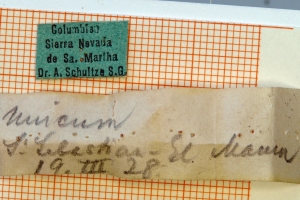 Columbien
Sierra Nevada
de Sa. Martha
Dr. A. Schultze S.G.
Unicum
S. Sebastian - El
19. III 28